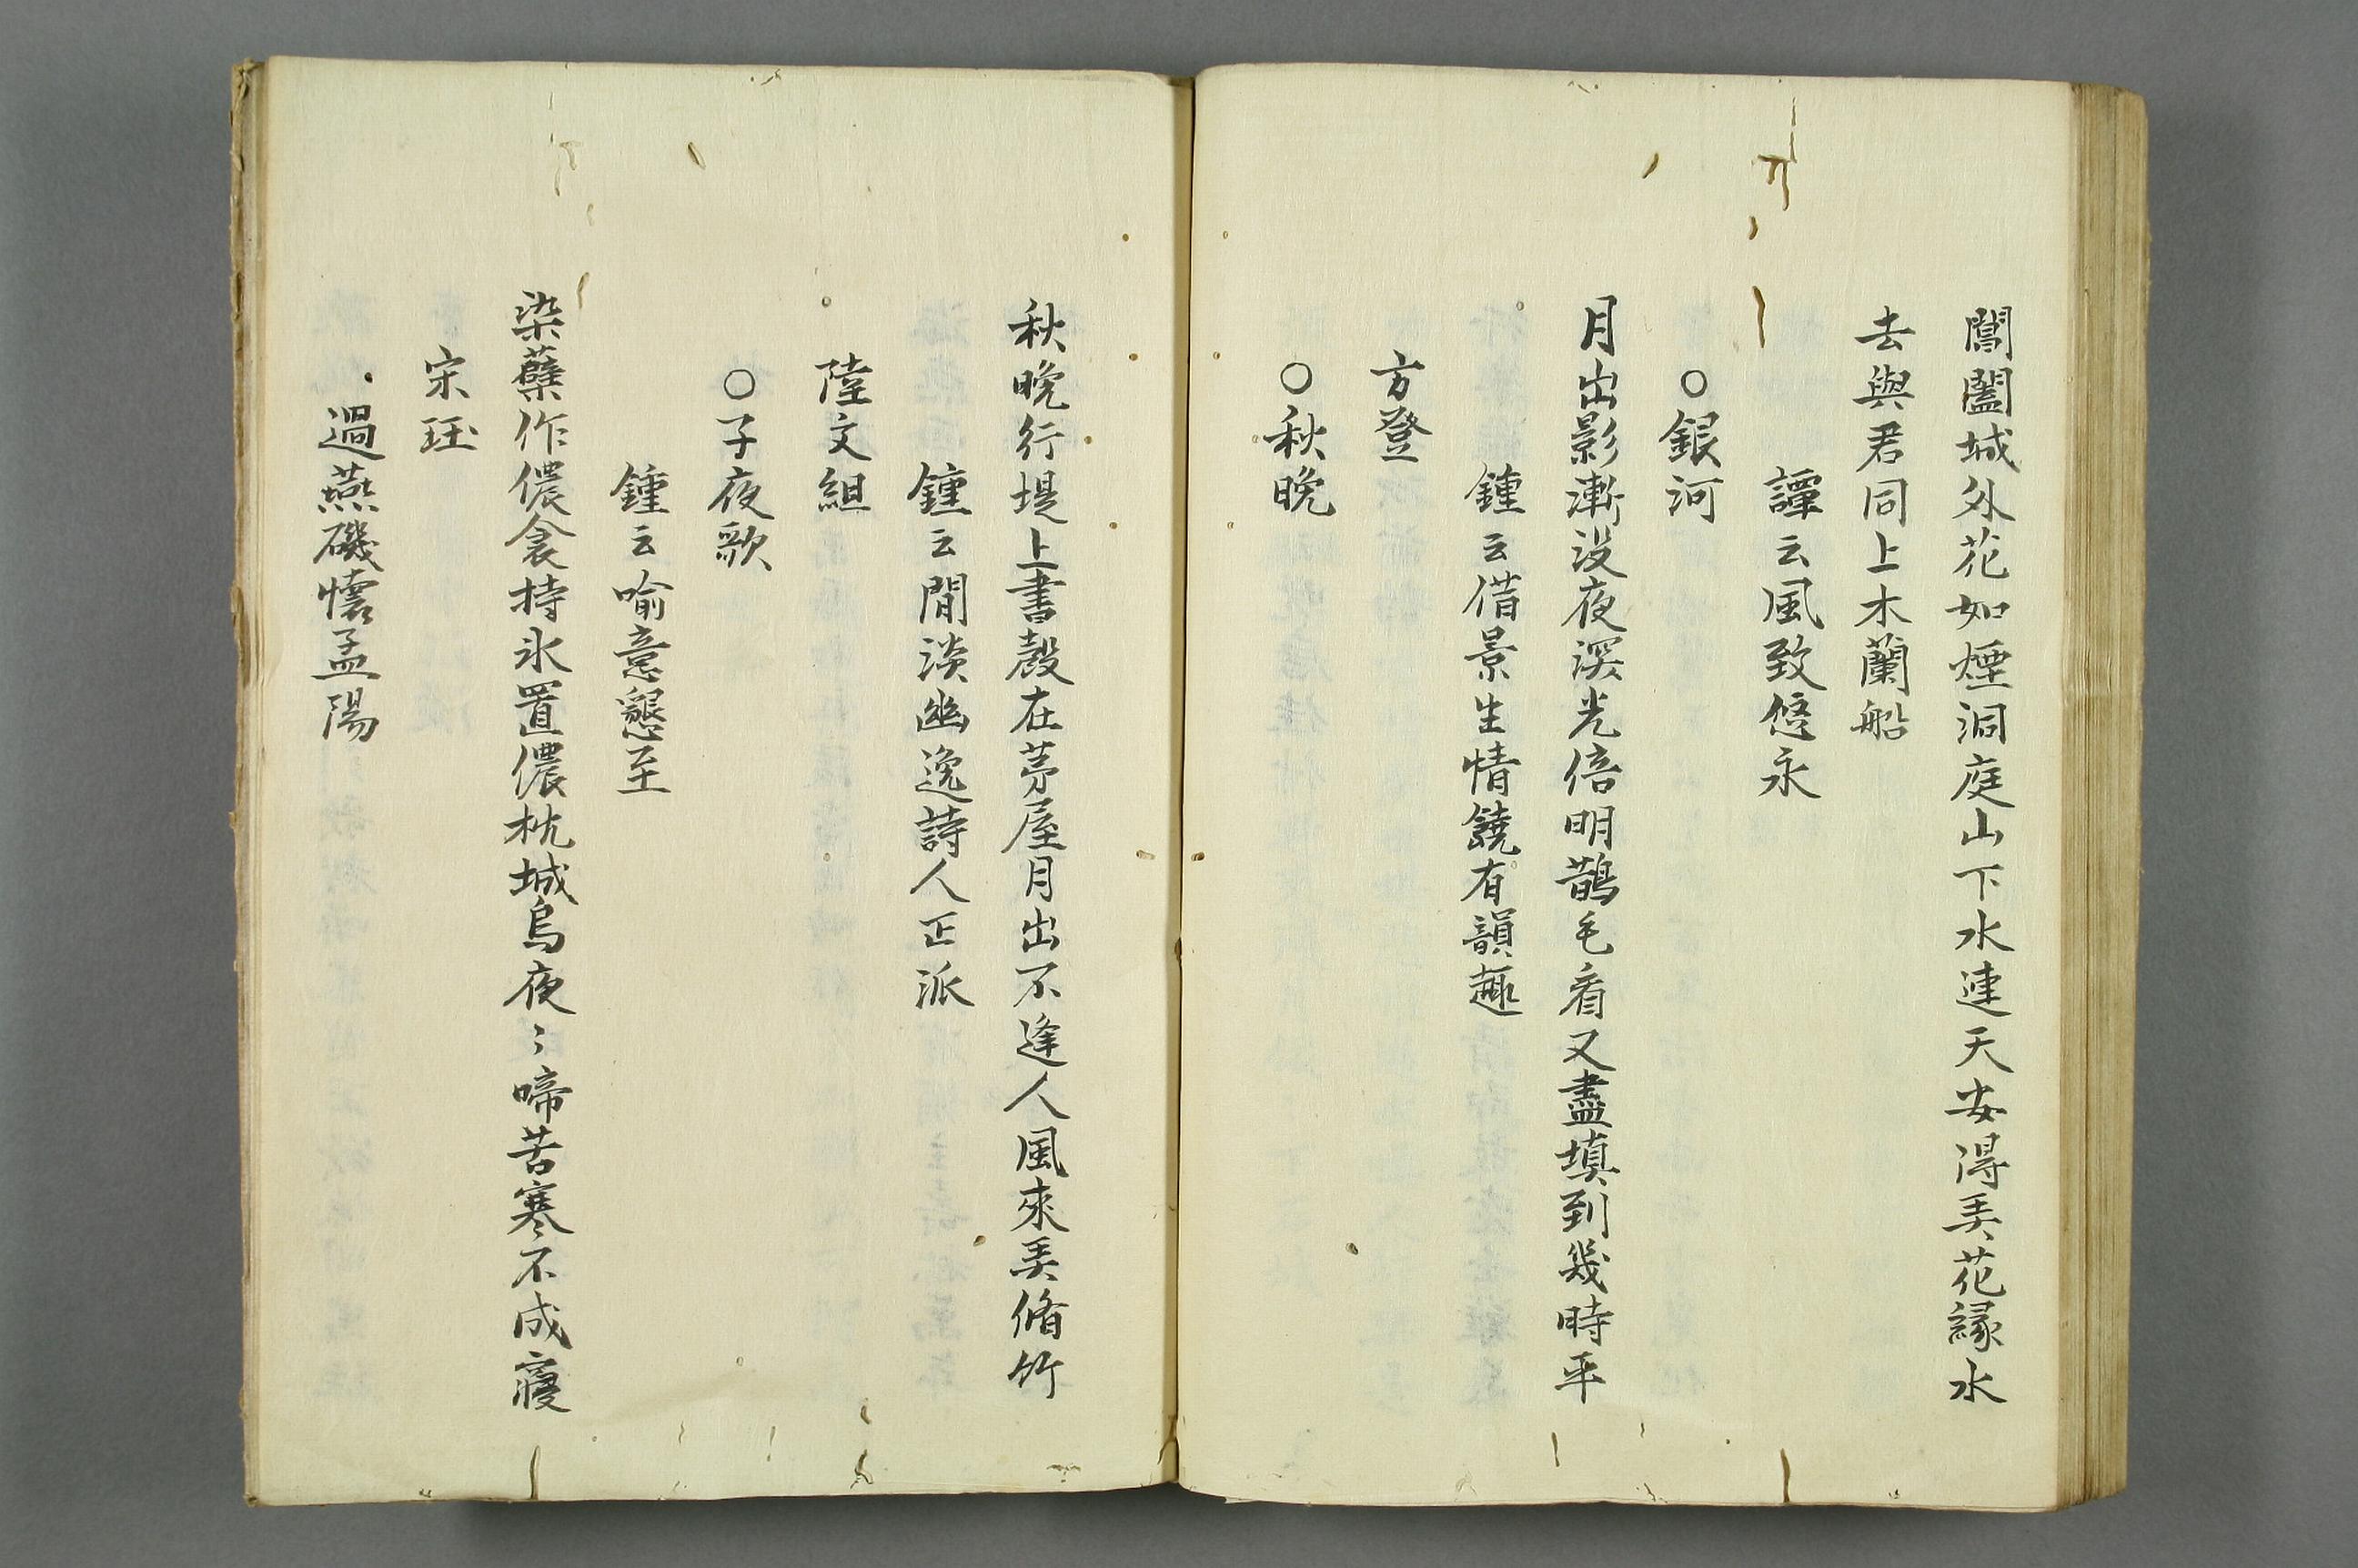 閶闔城外花如煙洞庭山下水連天安得美花緣水
去與君同上木蘭船
譚云風致悠永
○銀河
月出影漸沒夜深光倍明鵲毛看又盡填到幾時平
鍾云借景生情饒有韻趣
方登
○秋晚
秋晚行堤上書聲在茅屋月出不逢人風來美脩竹
鍾云閒淡幽逸詩人正派
陸文組
○子夜歌
鍾云喻意懇至
染蘗作儂衾持氷置儂枕城烏夜〻啼苦寒不成寢
宋珏
・過燕磯懷孟陽